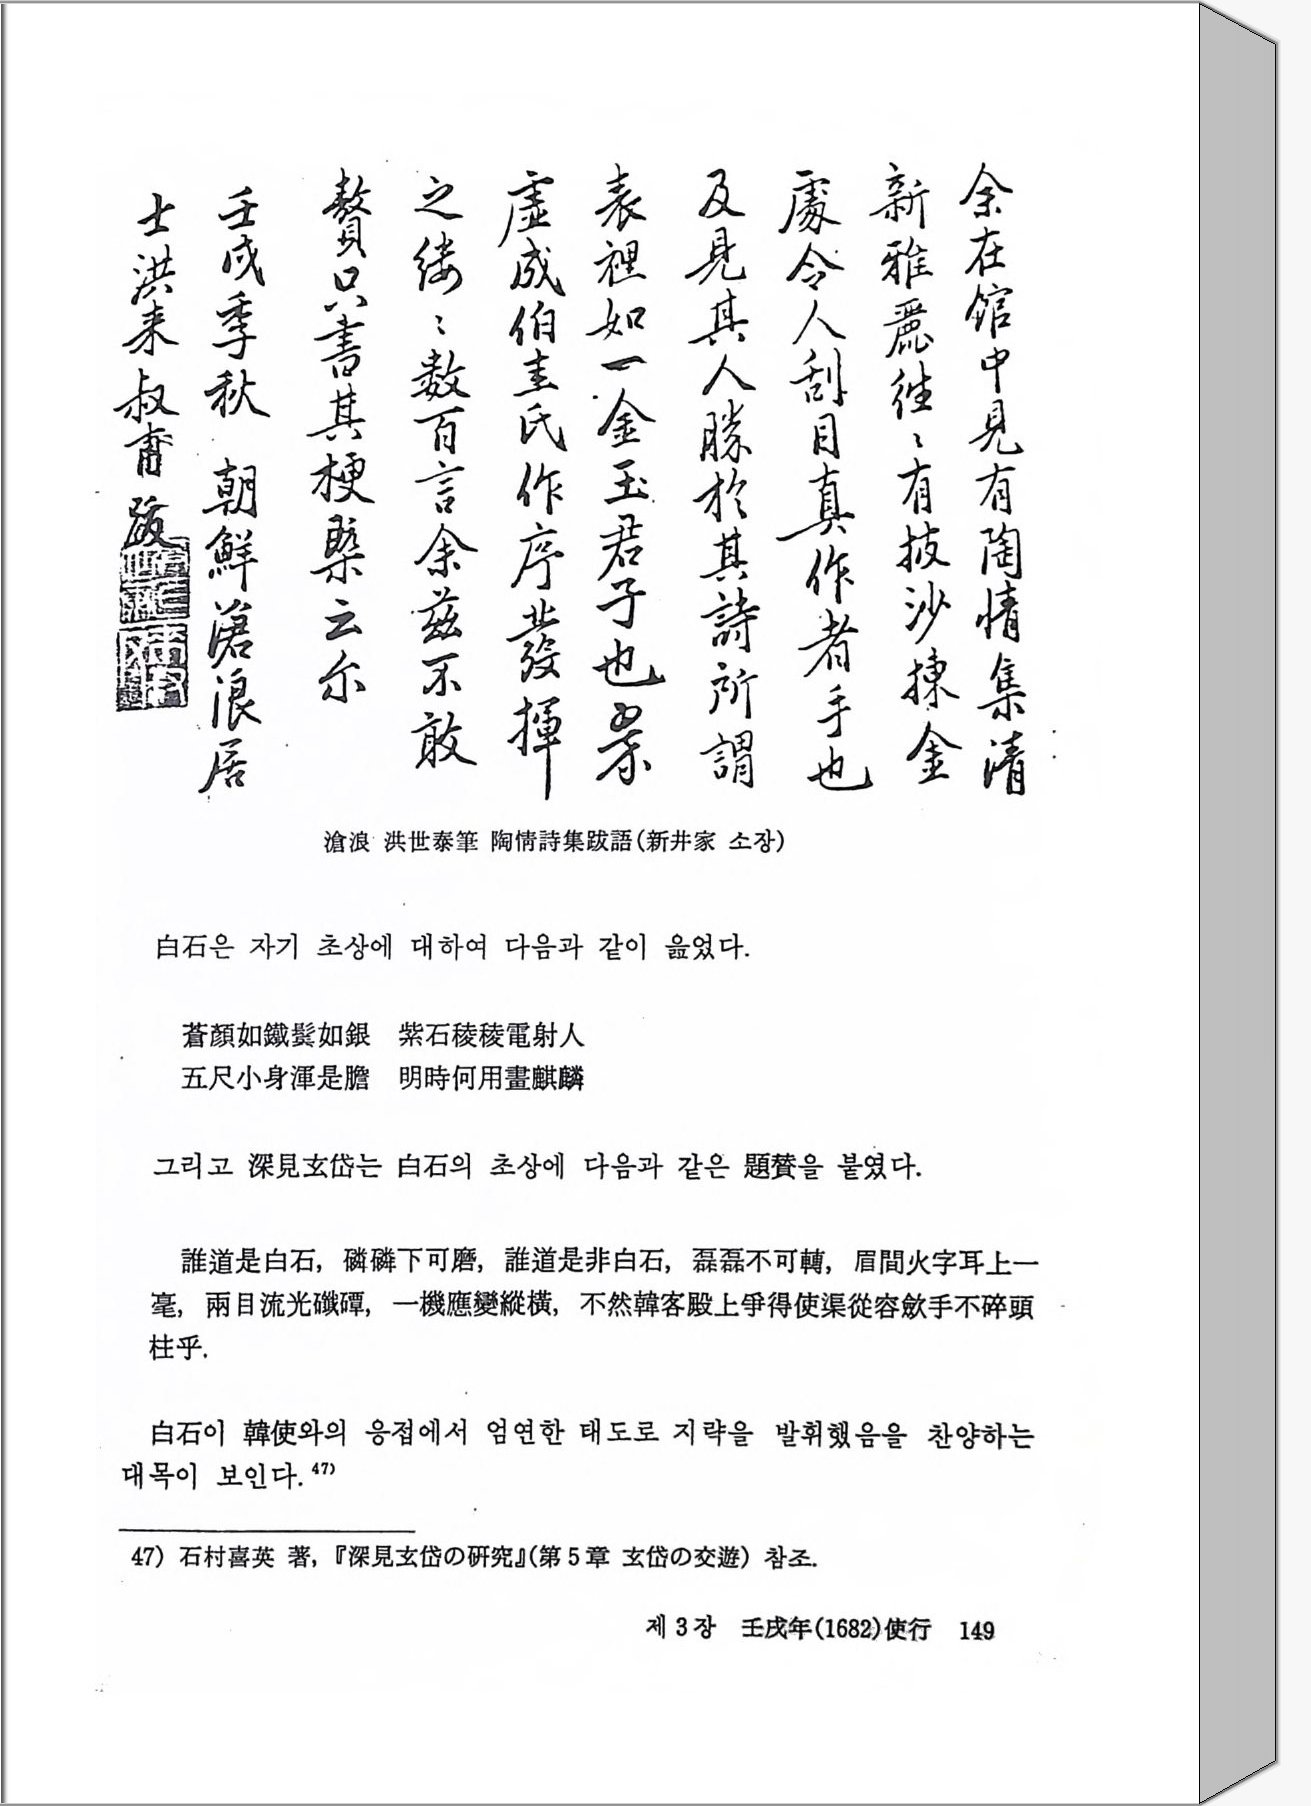 余在館中見有陶情集清
新雅麗往〻有披沙揀金
處令人刮目真作者手也
及見其人勝於其詩所謂
表裡如一金玉君子也
虛成伯圭氏作序發揮
之縷〻數百言余茲不敢
贅只書其梗槩云尔
壬戌季秋 朝鮮滄浪居
士洪来叔甫跋
滄浪 洪世泰筆 陶情詩集跋語(新井家 소장)
白石은 자기 초상에 대하여 다음과 같이 읊었다.
蒼顏如鐵鬂如銀 紫石稜稜電射人
五尺小身渾是膽 明時何用畫麒麟
그리고 深見玄岱는 白石의 초상에 다음과 같은 題賛을 붙였다.
誰道是白石, 磷磷下可磨, 誰道是非白石, 磊磊不可轉, 眉間火字耳上一
毫, 兩目流光磯磹, 一機應變縱橫, 不然韓客殿上爭得使渠從容斂手不碎頭
柱乎.
白石이 韓使와의 응접에서 엄연한 태도로 지략을 발휘했음을 찬양하는
대목이 보인다.⁴⁷⁾
47) 石村喜英 著, 『深見玄岱の研究』(第5章 玄岱の交遊) 참조.
제3장 壬戌年(1682)使行 149